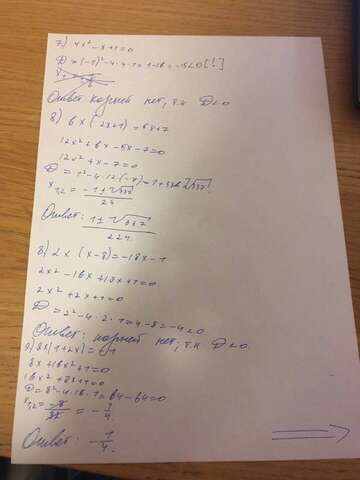 7) 4x² - x + 1 = 0
D = (-1)² - 4 · 4 · 1 = 1 - 16 = -15 < 0 [!]
Ответ: корней нет, т.к D < 0
8) 6x (2x+1) = 5x+7
12x² + 6x - 5x - 7 = 0
12x² + x - 7 = 0
D = 1² - 4 · 12 (-7) = 1 +
x1,2 = -1 ± √337 / 24
Ответ: 1 ± √337 /
8) 2x (x-8) = -18x - 1
2x² - 16x + 18x + 1 = 0
2x² + 2x + 1 = 0
D = 2² - 4 · 2 · 1 = 4 - 8 = -4 < 0
Ответ: корней нет, т.к D < 0
9) 8x(1+2x) = -1
8x + 16x² + 1 = 0
16x² + 8x + 1 = 0
D = 8² - 4 · 16 · 1 = 64 - 64 = 0
x1,2 = -8 / 32 = - 1/4
Ответ: - 1/4.